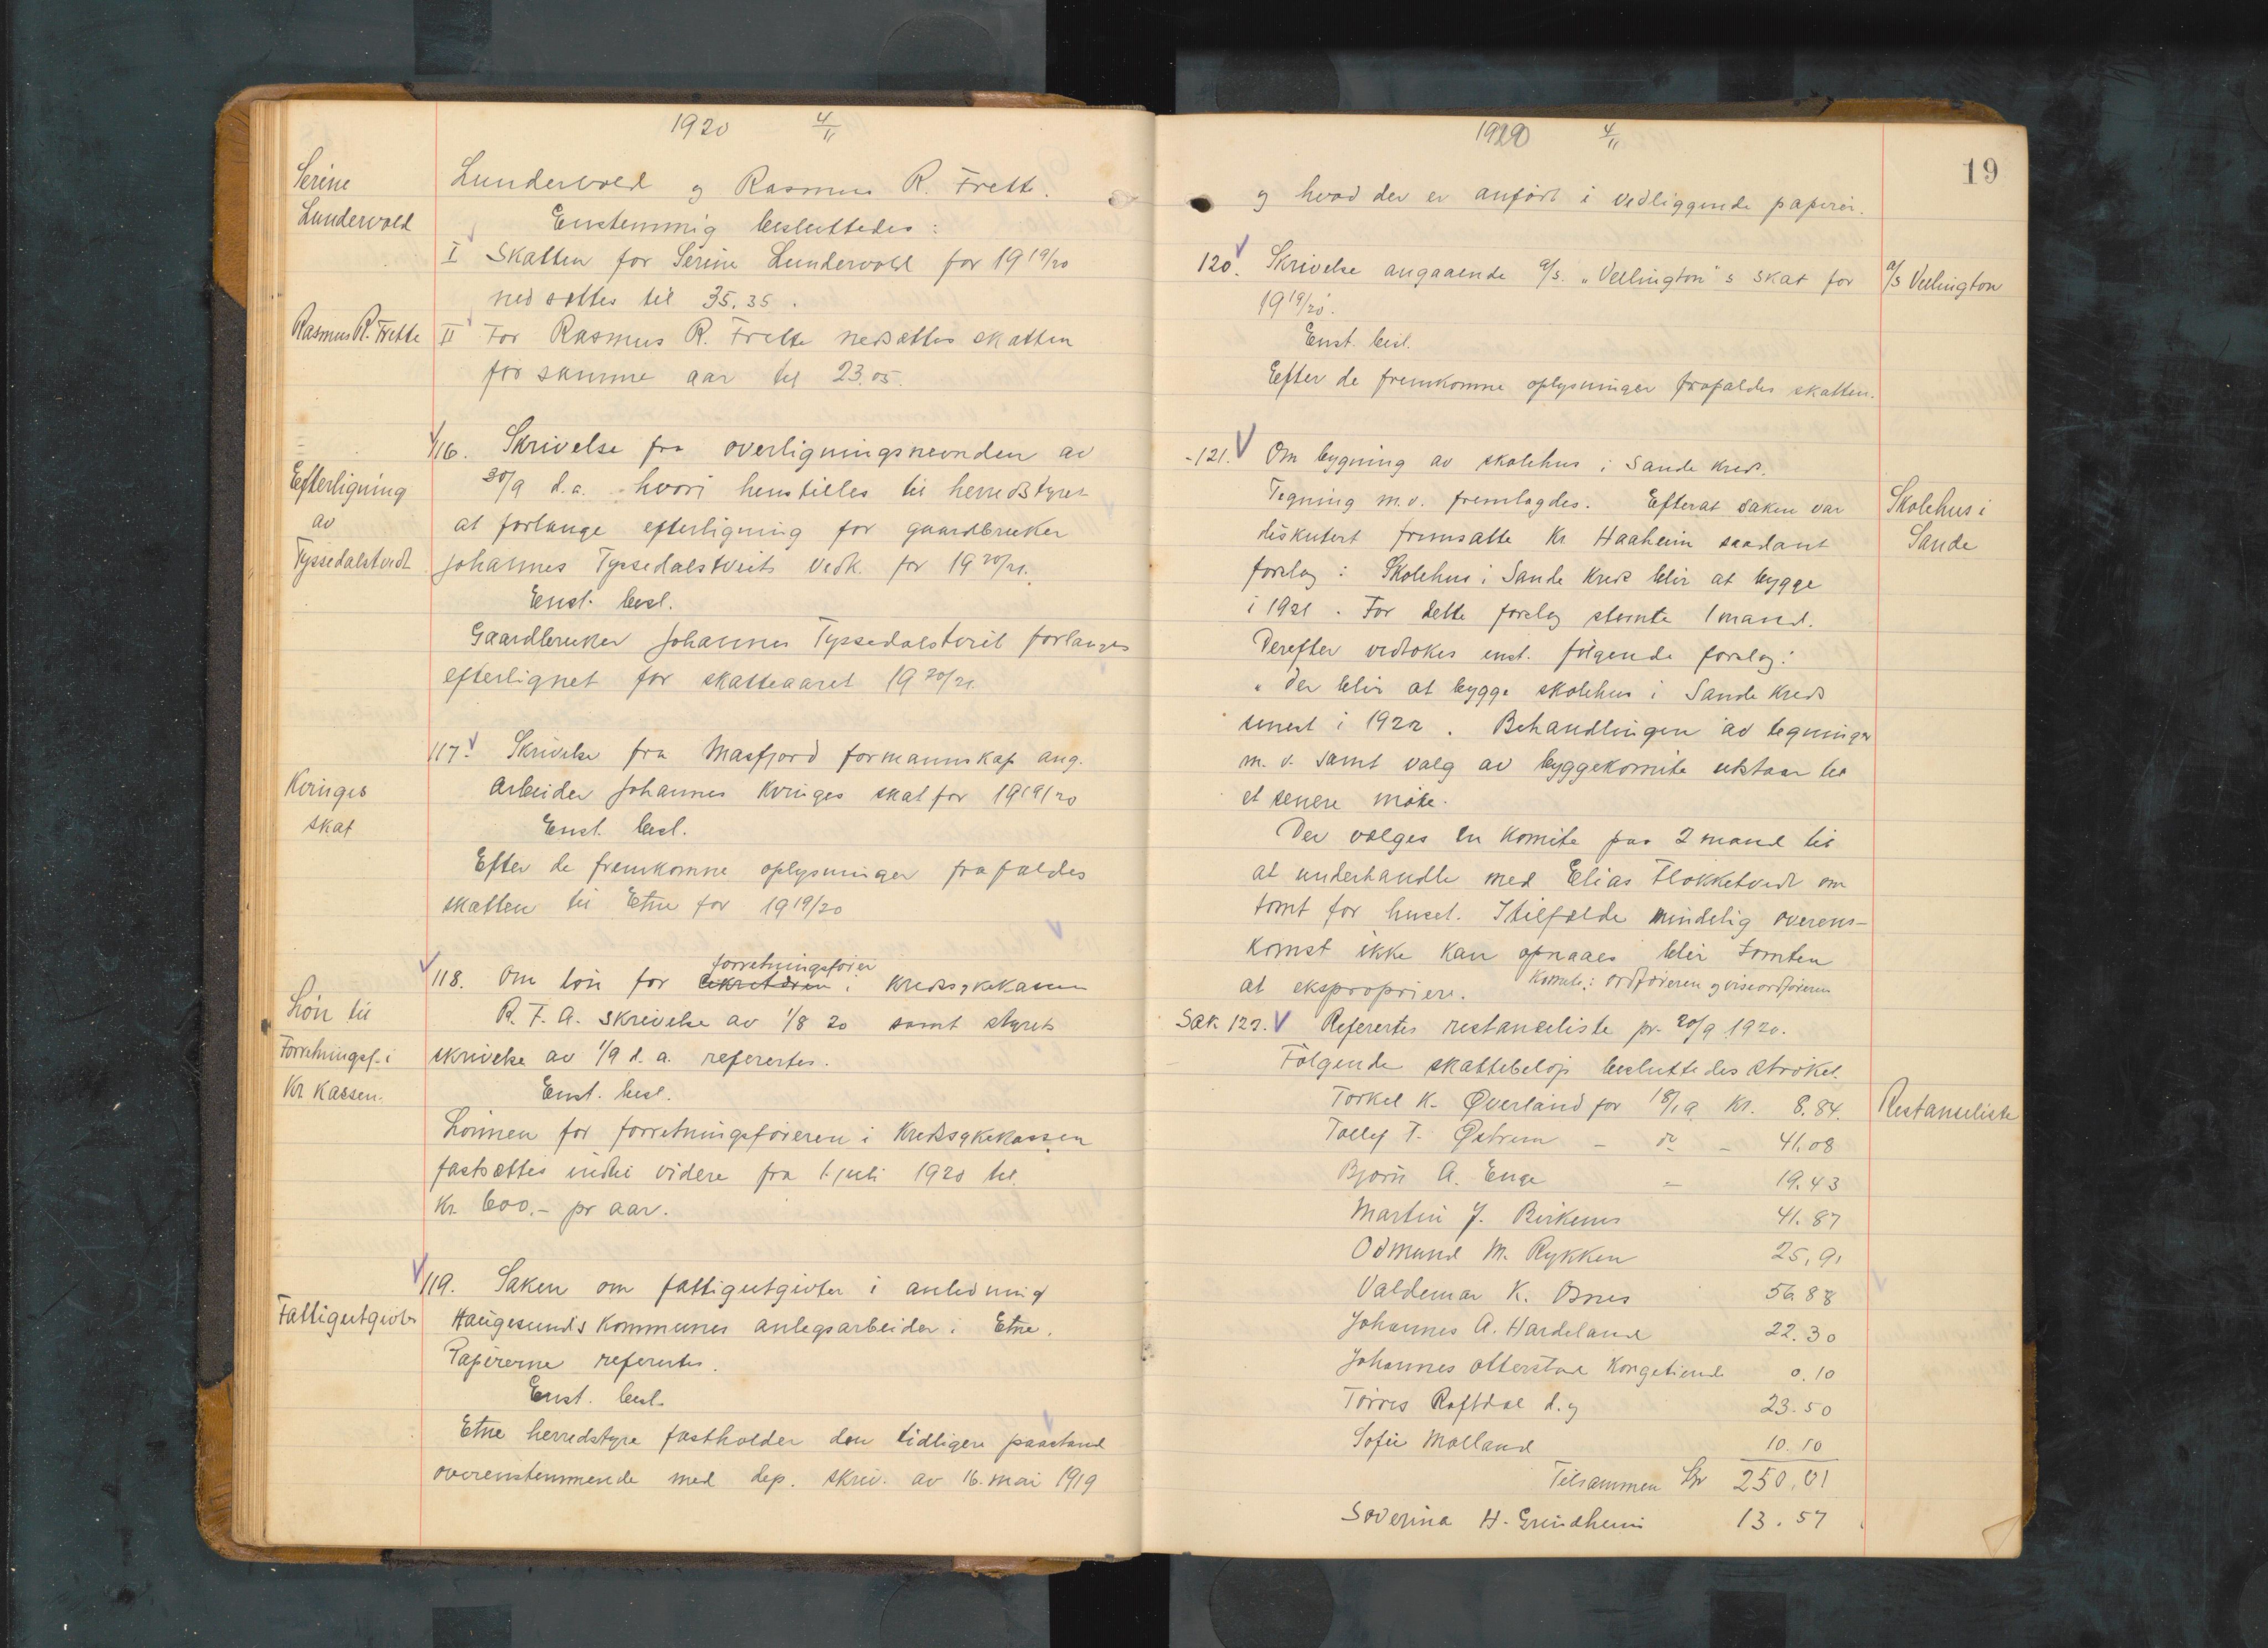 1920 4/11
Serine
Lundervold
Lundervold og Rasmus R. Frette.
Enstemmig besluttedes:
I Skatten for Serine Lundervold for 19 19/20
nedsættes til 35.35.
Rasmus R. Frette
II For Rasmus R. Frette nedsættes skatten
for samme aar til 23.05.
Efterligning
av
Tyssedalstvedt
116. Skrivelse fra overligningsnevnden av
30/9 d.a. hvori henstilles til herredstyret
at forlange efterligning for gaardbruker
Johannes Tyssedalstveits vedk. for 19 20/21.
Enst. besl.
Gaardbruker Johannes Tyssedalstveit forlanges
efterlignet for skatteaaret 19 20/21.
Kvinges
skat
117. Skrivelse fra Masfjord formannskap ang.
arbeider Johannes Kvinges skat for 19 19/20
Enst. besl.
Efter de fremkomne oplysninger frafaldes
skatten til Etne for 19 19/20
Løn til
Forretningsf. i
Kr kassen.
forretningsfører
118. Om løn for sekretæren i kredssykekassen
R. F. A. skrivelse av 1/8 20 samt styrets
skrivelse av 1/9 d.a. referertes.
Enst. besl.
Lønnen for forretningsføreren i Kredssykekassen
fastsættes indtil videre fra 1. juli 1920 til
Kr 600.- pr aar.
Fattigutgivter
119. Saken om fattigutgivter i anledning
Haugesunds kommunes anlegsarbeider i Etne.
Papirerne refertes.
Enst. besl.
Etne herredstyre fastholder den tidligere paastand
overenstemmende med dep. skriv. av 16. mai 1919
1920 4/11
19
og hvad der er anført i vedliggende papirer.
120. Skrivelse angaaende a/s. "Vellington"s skat for
19 19/20.
a/s Vellington
Enst. besl.
Eefter de fremkomne oplysninger frafaldes skatten.
-121. Om bygning av skolehus i Sande kreds.
Skolehus i
Sande
Tegning m.v. fremlagdes. Efterat saken var
diskutert fremsatte Kr Haaheim saadant
forslag: Skolehus i Sande kreds blir at bygge
i 1921. For dette forslag stemte 1 mand.
Derefter vedtokes enst. følgende forslag:
"Der blir at bygge skolehus i Sande kreds
senest i 1922. Behandlingen av tegninger
m.v. samt valg av byggekomite utstaar til
et senere møte.
Der vælges en komite paa 2 mand til
at underhandle med Elias Flokketvedt om
tomt for huset. I tilfælde mindelig overens-
komst ikke kan opnaaes blir tomten
at ekspropriere. Komite: ordføreren og viseordføreren
Sak 122. Referertes restanseliste pr. 20/9 1920.
Følgende skattebeløp besluttedes strøket.
Restanseliste
Torkel K. Øverland for 18/19 Kr. 8.84.
Tollef T. Østrem - do - 41.08
Bjørn A. Enge - 19.43
Martin J. Birkenes 41.87
Odmund M. Rykken 25,91
Valdemar K. Osnes 56.88
Johannes A. Hardeland 22.30
Johannes Otterstad Kongetiende 0.10
Tørres Raftdal d.y 23.50
Sofie Molland 10.10
Tilsammen Kr 250,01
Soverina H. Grindheim 13.57